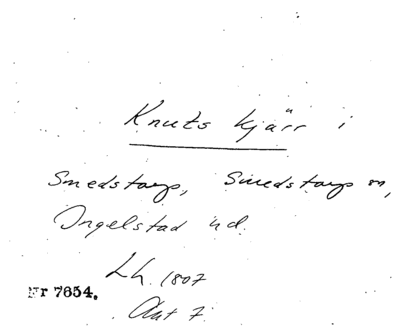 Knuts kjärr i
Smedstorp, Smedstorp sn,
Ingelstad hd.
Lh. 1807
Akt 7.
Nr 7654.